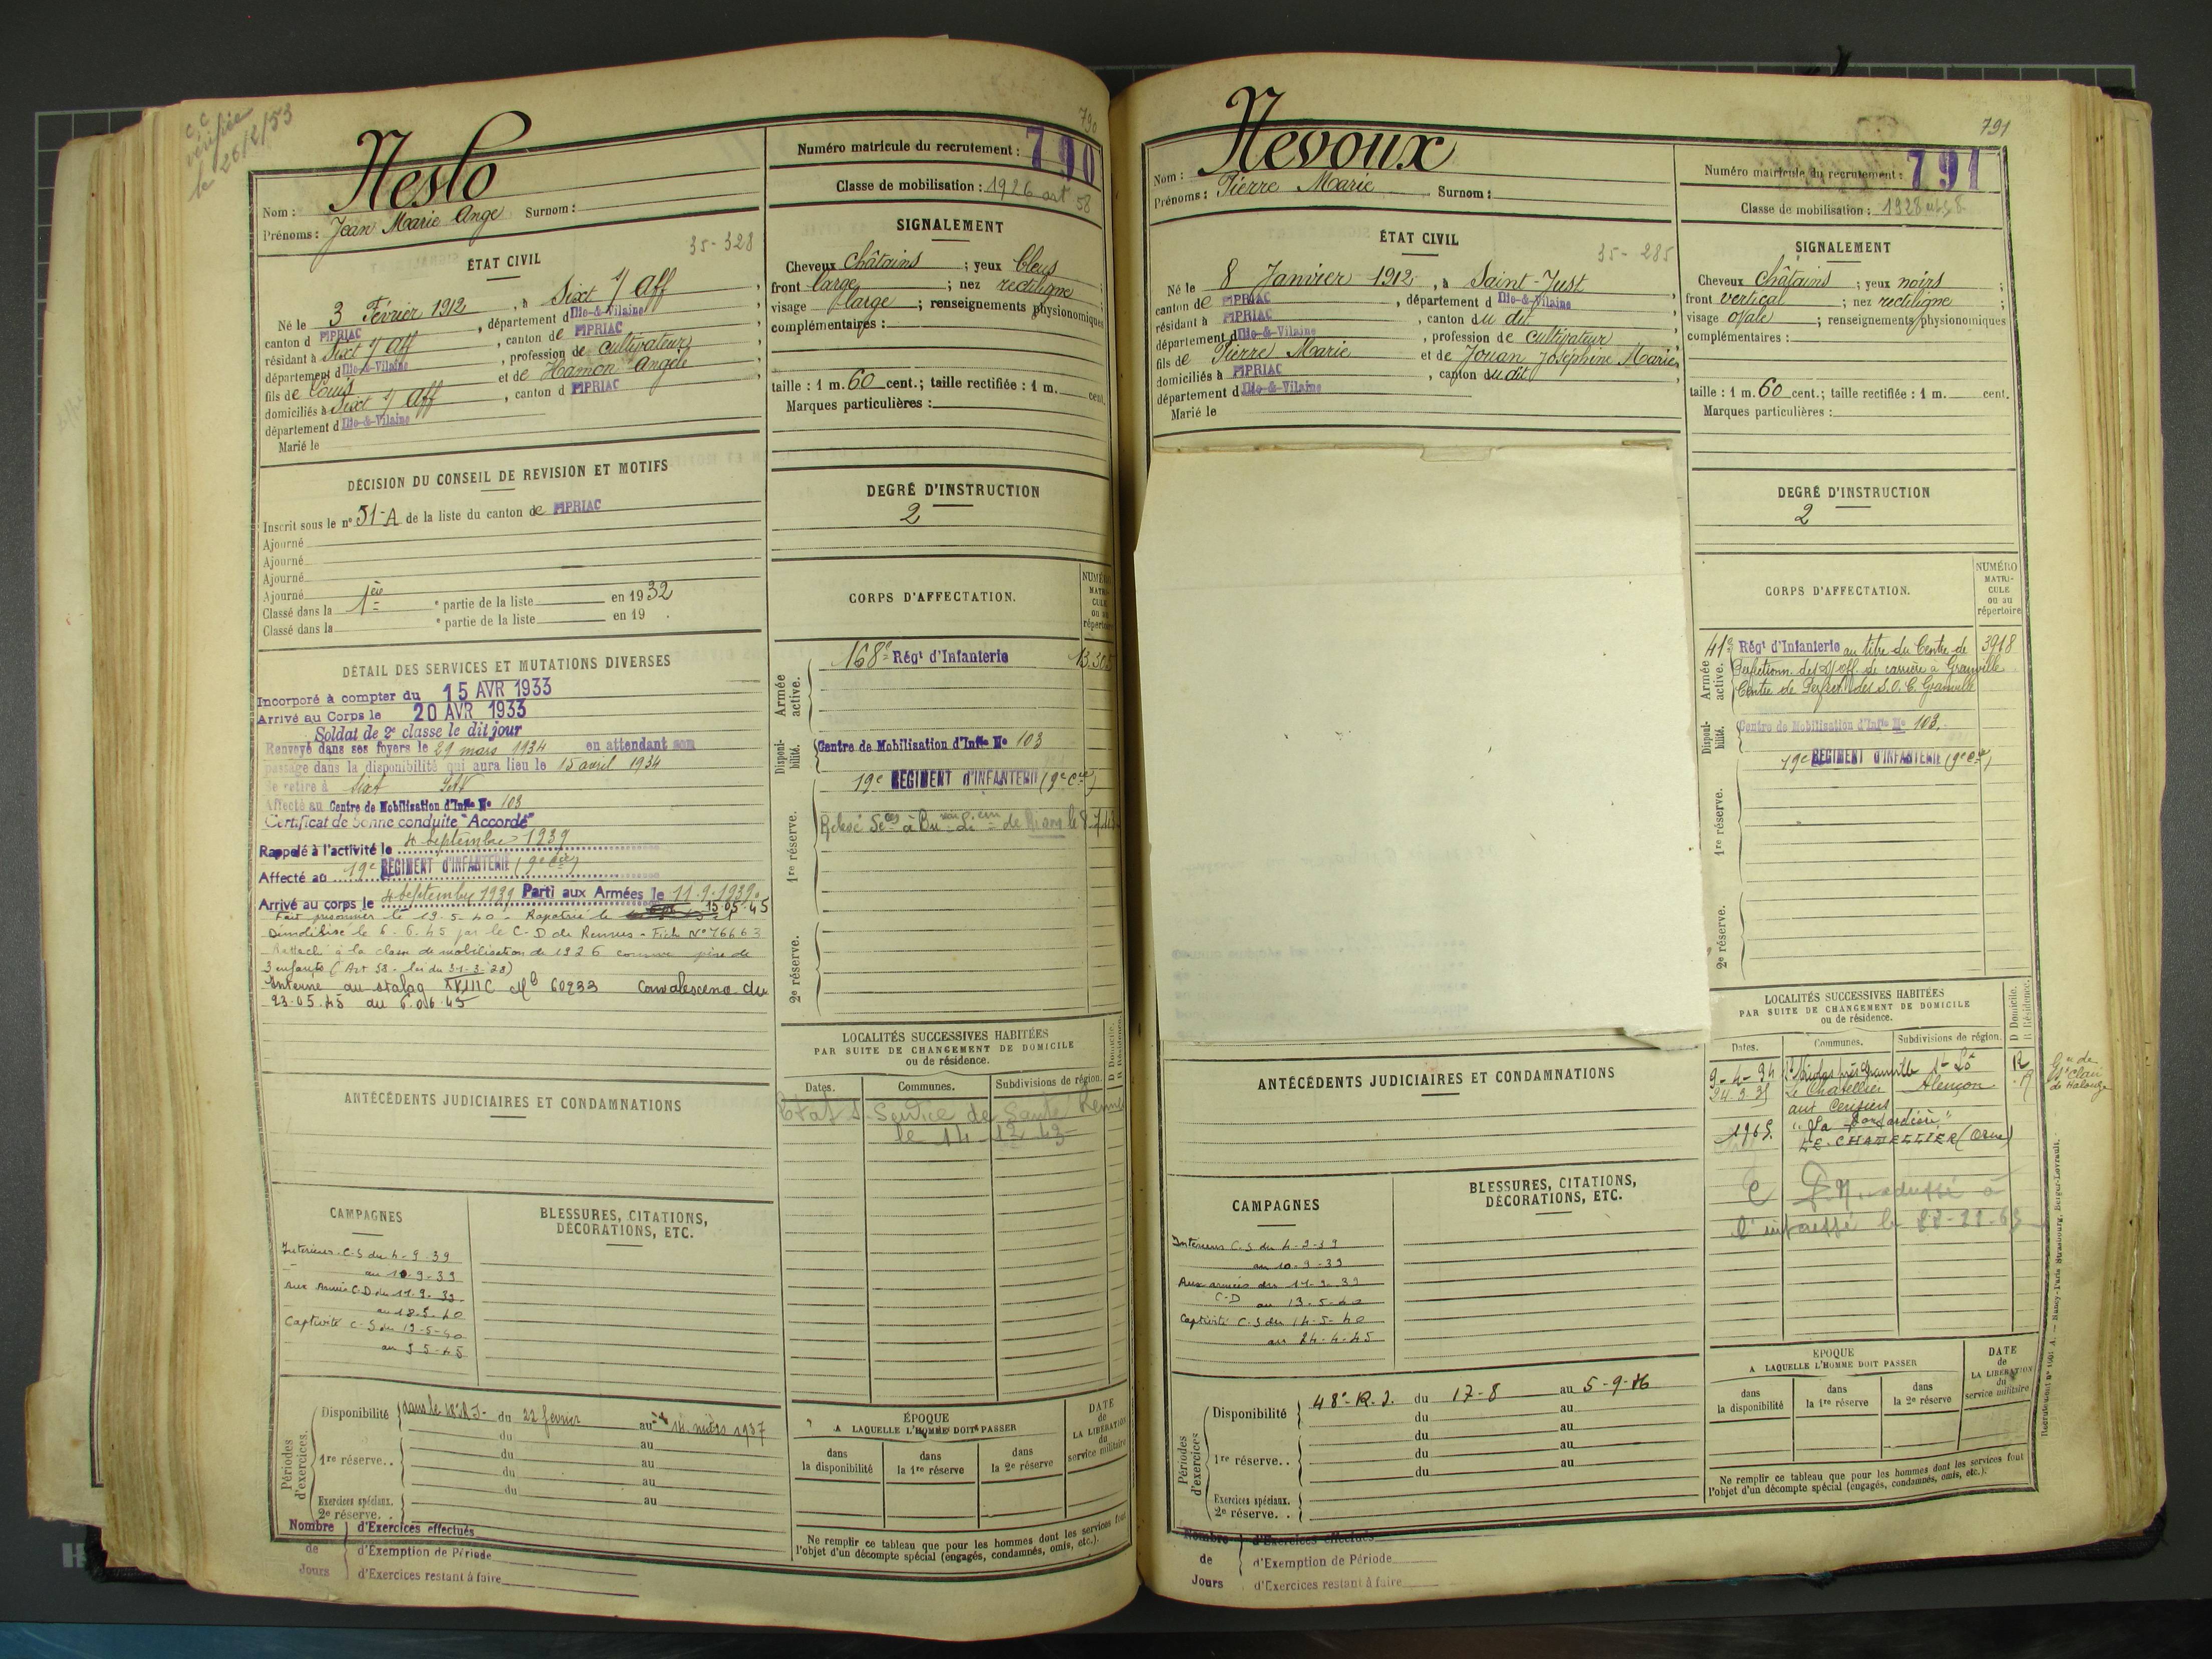 c c
vérifiée
le 26/2/53
790
Neslo
Nom :
Prénoms : Jean Marie Ange Surnom :
Numéro matricule du recrutement : 790
Classe de mobilisation : 1926 art 58
35-328
ÉTAT CIVIL
Né le 3 Février 1912, à Sixt s/ Aff,
canton d PIPRIAC, département d Ille-&-Vilaine
résidant à Sixt s/ Aff, canton de PIPRIAC,
département d Ille-&-Vilaine, profession de cultivateur,
fils de Louis et de Hamon Angèle
domiciliés à Sixt s/ Aff, canton d PIPRIAC,
département d Ille-&-Vilaine
Marié le
SIGNALEMENT
Cheveux châtains ; yeux bleus
front large ; nez rectiligne ;
visage large ; renseignements physionomiques
complémentaires :
taille : 1 m. 60 cent.; taille rectifiée : 1 m. cent.
Marques particulières :
DÉCISION DU CONSEIL DE REVISION ET MOTIFS
Inscrit sous le n° 51-A de la liste du canton de PIPRIAC
Ajourné
Ajourné
Ajourné
Ajourné
Classé dans la 1ère e partie de la liste en 1932
Classé dans la e partie de la liste en 19 .
DEGRÉ D'INSTRUCTION
2
DÉTAIL DES SERVICES ET MUTATIONS DIVERSES
Incorporé à compter du 15 AVR 1933
Arrivé au Corps le 20 AVR 1933
Soldat de 2e classe le dit jour
Renvoyé dans ses foyers le 29 mars 1934 en attendant son
passage dans la disponibilité qui aura lieu le 15 avril 1934
Se retire à Sixt
Affecté au Centre de Mobilisation d'Infie No 103
Certificat de bonne conduite "Accordé"
Rappelé à l'activité le 4 septembre 1939
Affecté au 19e REGIMENT D'INFANTERIE (9e Cie)
Arrivé au corps le 4 septembre 1939 Parti aux Armées le 11-9-1939
Fait prisonnier le 19.5.40 - Rapatrié le 15.05.45
Démobilisé le 6.6.45 par le C-D de Rennes - Fiche N° 76663
Rattaché à la classe de mobilisation de 1926 comme père de
3 enfants (Art 58 - loi du 31-3-28)
Interné au stalag XVIIIC Mle 60933 Convalescence du
23.05.45 au 6.06.45
CORPS D'AFFECTATION.
NUMÉRO MATRICULE ou au répertoire
Armée active.
168e Régt d'Infanterie 13.305
Disponibilité.
Centre de Mobilisation d'Infie No 103
19e REGIMENT D'INFANTERIE (9e Cie)
1re réserve.
2e réserve.
LOCALITÉS SUCCESSIVES HABITÉES
PAR SUITE DE CHANGEMENT DE DOMICILE
ou de résidence.
D Domicile.
R Résidence.
Dates. Communes. Subdivisions de région.
Service de Santé Rennes
le 14 12 43
ANTÉCÉDENTS JUDICIAIRES ET CONDAMNATIONS
CAMPAGNES
Intérieur C-S du 4-9-39
au 10-9-39
Aux Armées C-D du 11-9-39
au 18-5-40
Captivité C-S du 19-5-40
BLESSURES, CITATIONS,
DÉCORATIONS, ETC.
Périodes d'exercices.
Disponibilité du 22 février au 14 mars 1937
du au
1re réserve.. du au
du au
du au
Exercices spéciaux.
2e réserve. .
Nombre d'Exercices effectués
de d'Exemption de Période
Jours d'Exercices restant à faire
ÉPOQUE
A LAQUELLE L'HOMME DOIT PASSER
dans la disponibilité
dans la 1re réserve
dans la 2e réserve
DATE de LA LIBÉRATION du service militaire
Ne remplir ce tableau que pour les hommes dont les services font
l'objet d'un décompte spécial (engagés, condamnés, omis, etc.).
791
Nevoux
Nom :
Prénoms : Pierre Marie Surnom :
Numéro matricule du recrutement : 791
Classe de mobilisation : 1928
35-285
ÉTAT CIVIL
Né le 8 Janvier 1912, à Saint-Just
canton de PIPRIAC, département d Ille-&-Vilaine
résidant à PIPRIAC, canton du dit,
département d Ille-&-Vilaine, profession de cultivateur
fils de Pierre Marie et de Jouan Joséphine Marie,
domiciliés à PIPRIAC, canton du dit
département d Ille-&-Vilaine
Marié le
SIGNALEMENT
Cheveux châtains ; yeux noirs
front vertical ; nez rectiligne ;
visage ovale ; renseignements physionomiques
complémentaires :
taille : 1 m. 60 cent.; taille rectifiée : 1 m. cent.
Marques particulières :
DEGRÉ D'INSTRUCTION
2
CORPS D'AFFECTATION.
NUMÉRO MATRICULE ou au répertoire
Armée active.
41e Régt d'Infanterie au titre du Centre de 3918
Perfectionn. des S/off. de carrière à Granville
Centre de Perfect. des S.O.C. Granville
Disponibilité.
Centre de Mobilisation d'Infie No 103.
19e REGIMENT D'INFANTERIE (9e Cie)
1re réserve.
2e réserve.
LOCALITÉS SUCCESSIVES HABITÉES
PAR SUITE DE CHANGEMENT DE DOMICILE
ou de résidence.
D Domicile.
R Résidence.
Dates. Communes. Subdivisions de région.
9-4-34 St Nicolas près Granville St Lô R
24.3.35 Le Chatellier Alençon
aux Cerisiers
1965.
LE CHATELLIER (Orne)
ANTÉCÉDENTS JUDICIAIRES ET CONDAMNATIONS
CAMPAGNES
Intérieur C.S du 4-9-39
au 10-9-39
Aux armées du 11-9-39
C-D au 13-5-40
Captivité C.S du 14-5-40
au 24-4-45
BLESSURES, CITATIONS,
DÉCORATIONS, ETC.
Périodes d'exercices.
Disponibilité 48e R.I. du 17-8 au 5-9-36
du au
du au
1re réserve.. du au
du au
Exercices spéciaux.
2e réserve. .
Nombre d'Exercices effectués
de d'Exemption de Période
Jours d'Exercices restant à faire
ÉPOQUE
A LAQUELLE L'HOMME DOIT PASSER
dans la disponibilité
dans la 1re réserve
dans la 2e réserve
DATE de LA LIBÉRATION du service militaire
Ne remplir ce tableau que pour les hommes dont les services font
l'objet d'un décompte spécial (engagés, condamnés, omis, etc.).